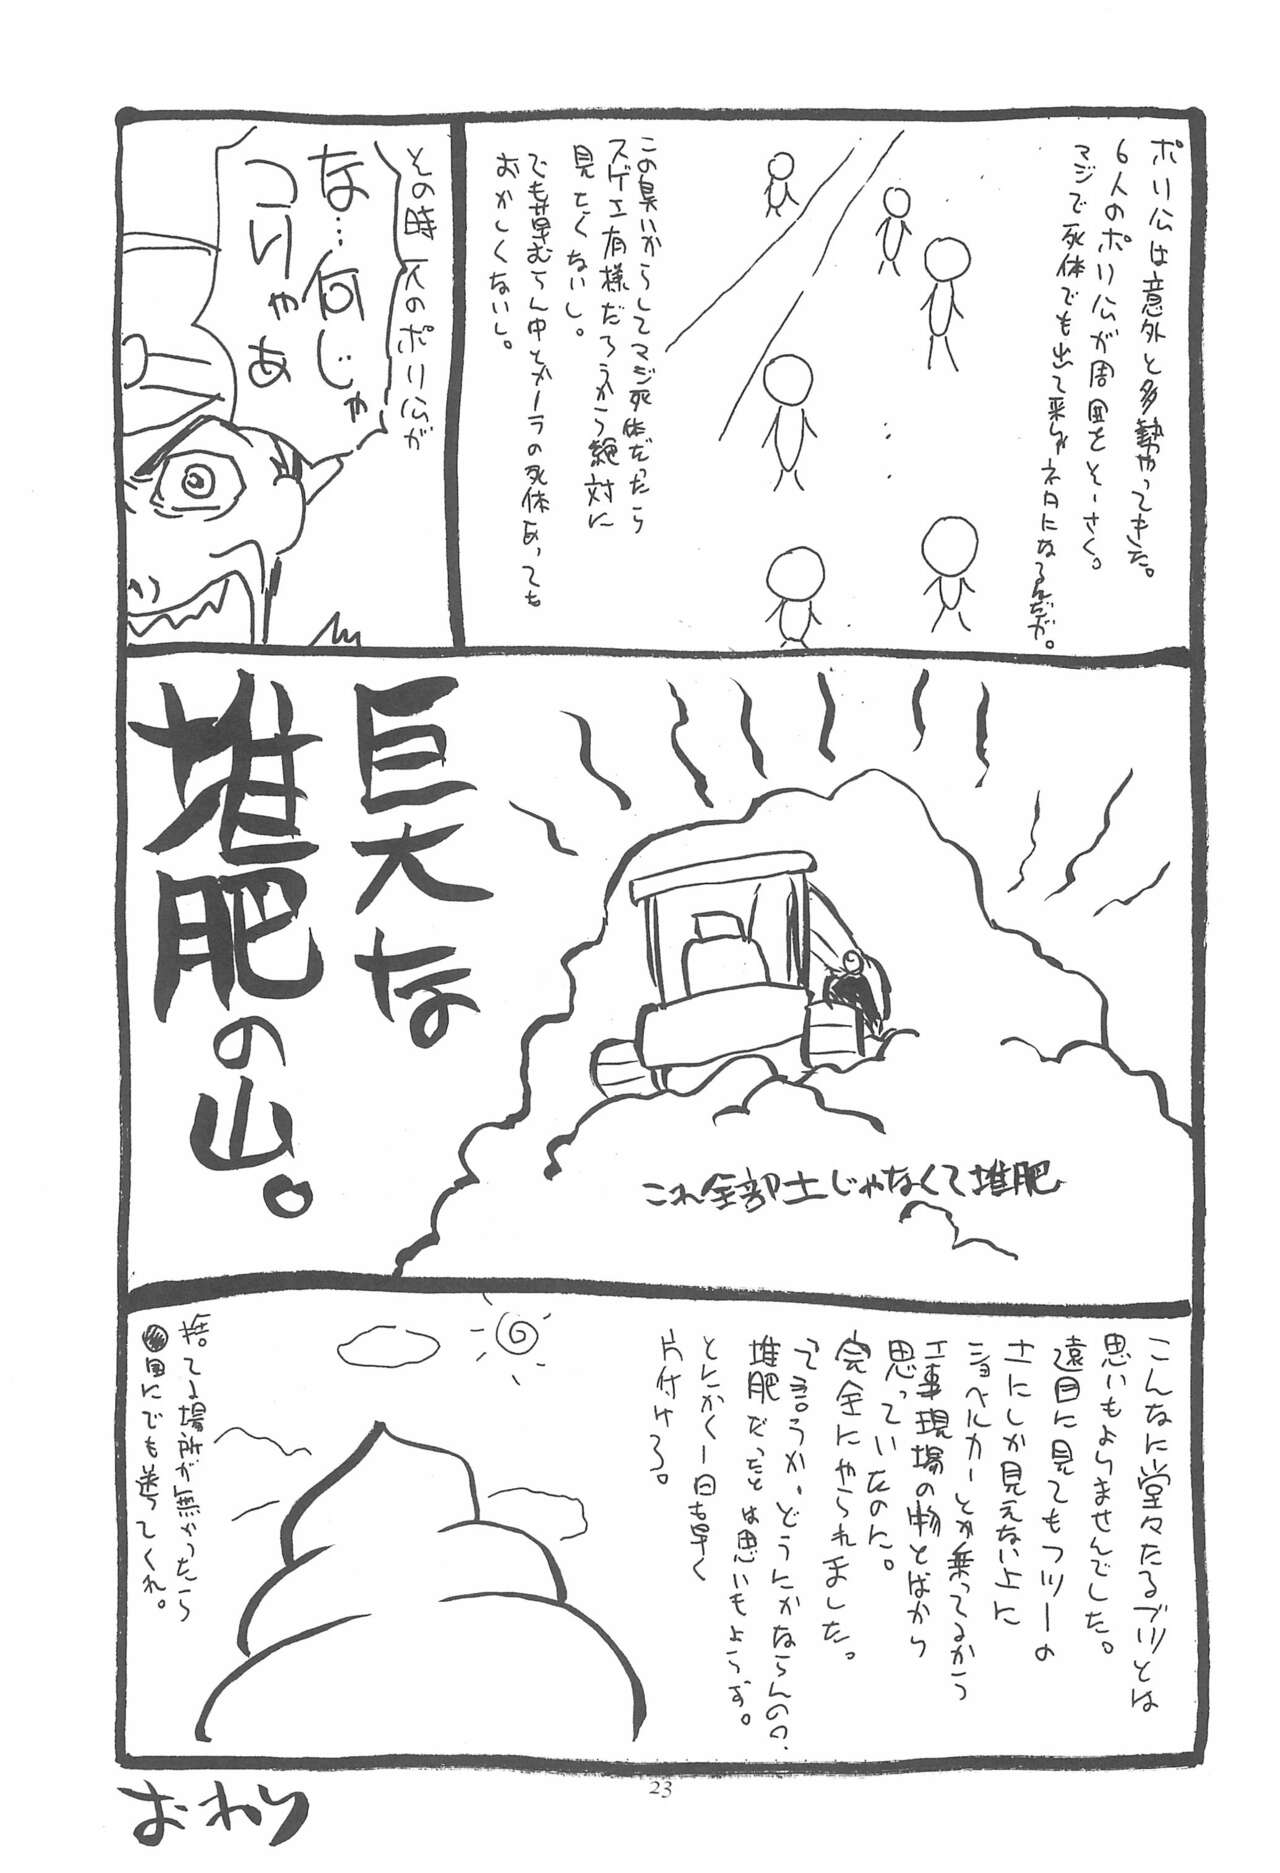 ポリ公は意外と多勢やってきた。
6人のポリ公が周囲をそーさく。
マジで死体でも出て来りゃネタになるんだが。
この臭いからしてマジ死体だったら
スゲエ有様だろうから絶対に
見たくないし。
でも草むらん中とかーラの死体あっても
おかしくないし。
その時一人のポリ公が
な…何じゃ
こりゃあ
巨大な
堆肥の山。
これ全部土じゃなくて堆肥
こんなに堂々たるブツとは
思いもよりませんでした。
遠目に見てもフツーの
土にしか見えない上に
ショベルカーとか乗ってるから
工事現場の物とばかり
思っていたのに。
完全にやられました。
って言うか、どうにかならんの、
堆肥だったとは思いもよらず。
とにかく一日も早く
片付けろ。
捨てる場所が無かったら
●国にでも送ってくれ。
おわり
23